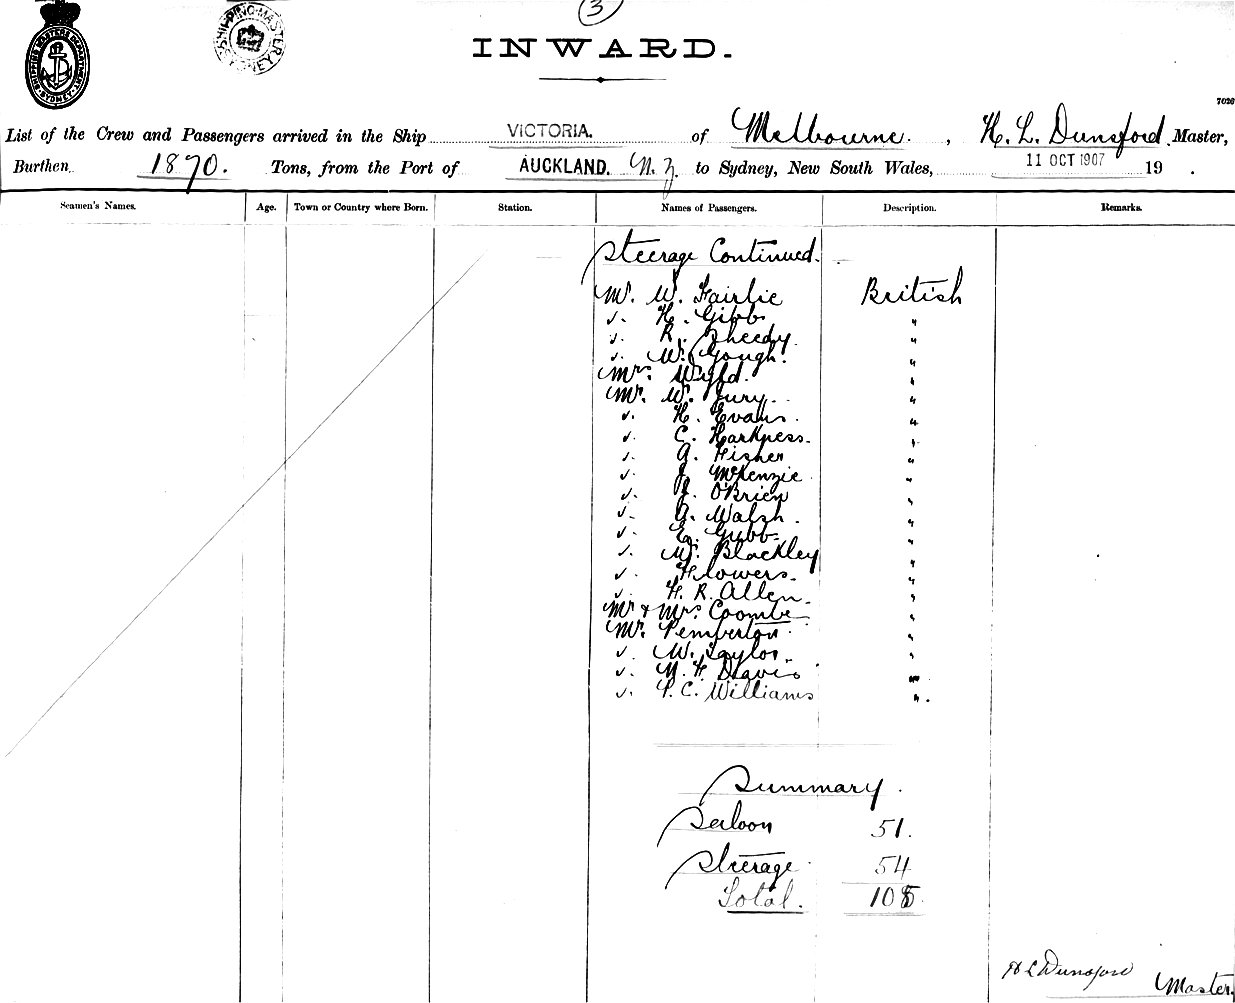 3
SHIPPING MASTERS DEPARTMENT SYDNEY
SHIPPING MASTER SYDNEY
INWARD.
7026
List of the Crew and Passengers arrived in the Ship VICTORIA. of Melbourne. , H. L. Dunsford, Master,
Burthen 1870. Tons, from the Port of AUCKLAND. N. Z. to Sydney, New South Wales, 11 OCT 1907 19 .
Seamen's Names. Age. Town or Country where Born. Station. Names of Passengers. Description. Remarks.
Steerage Continued.
Mr. W. Fairlie British
". H. Gibb "
". R. Sheedy "
". W. Gough. "
Mrs. Wyld. "
Mr. W. Jury. "
". H. Evans. "
". C. Harkness. "
". A. Fisher "
". J. McKenzie "
". J. O'Brien "
". A. Walsh. "
". E. Gubb. "
". W. Blackley "
". Flowers. "
". H. R. Allen. "
Mr & Mrs. Coombe "
Mr. Pemberton. "
". W. Taylor. "
". H. Davis "
". C. Williams "
Summary.
Saloon 51.
Steerage 54
Total. 105
H L Dunsford Master.